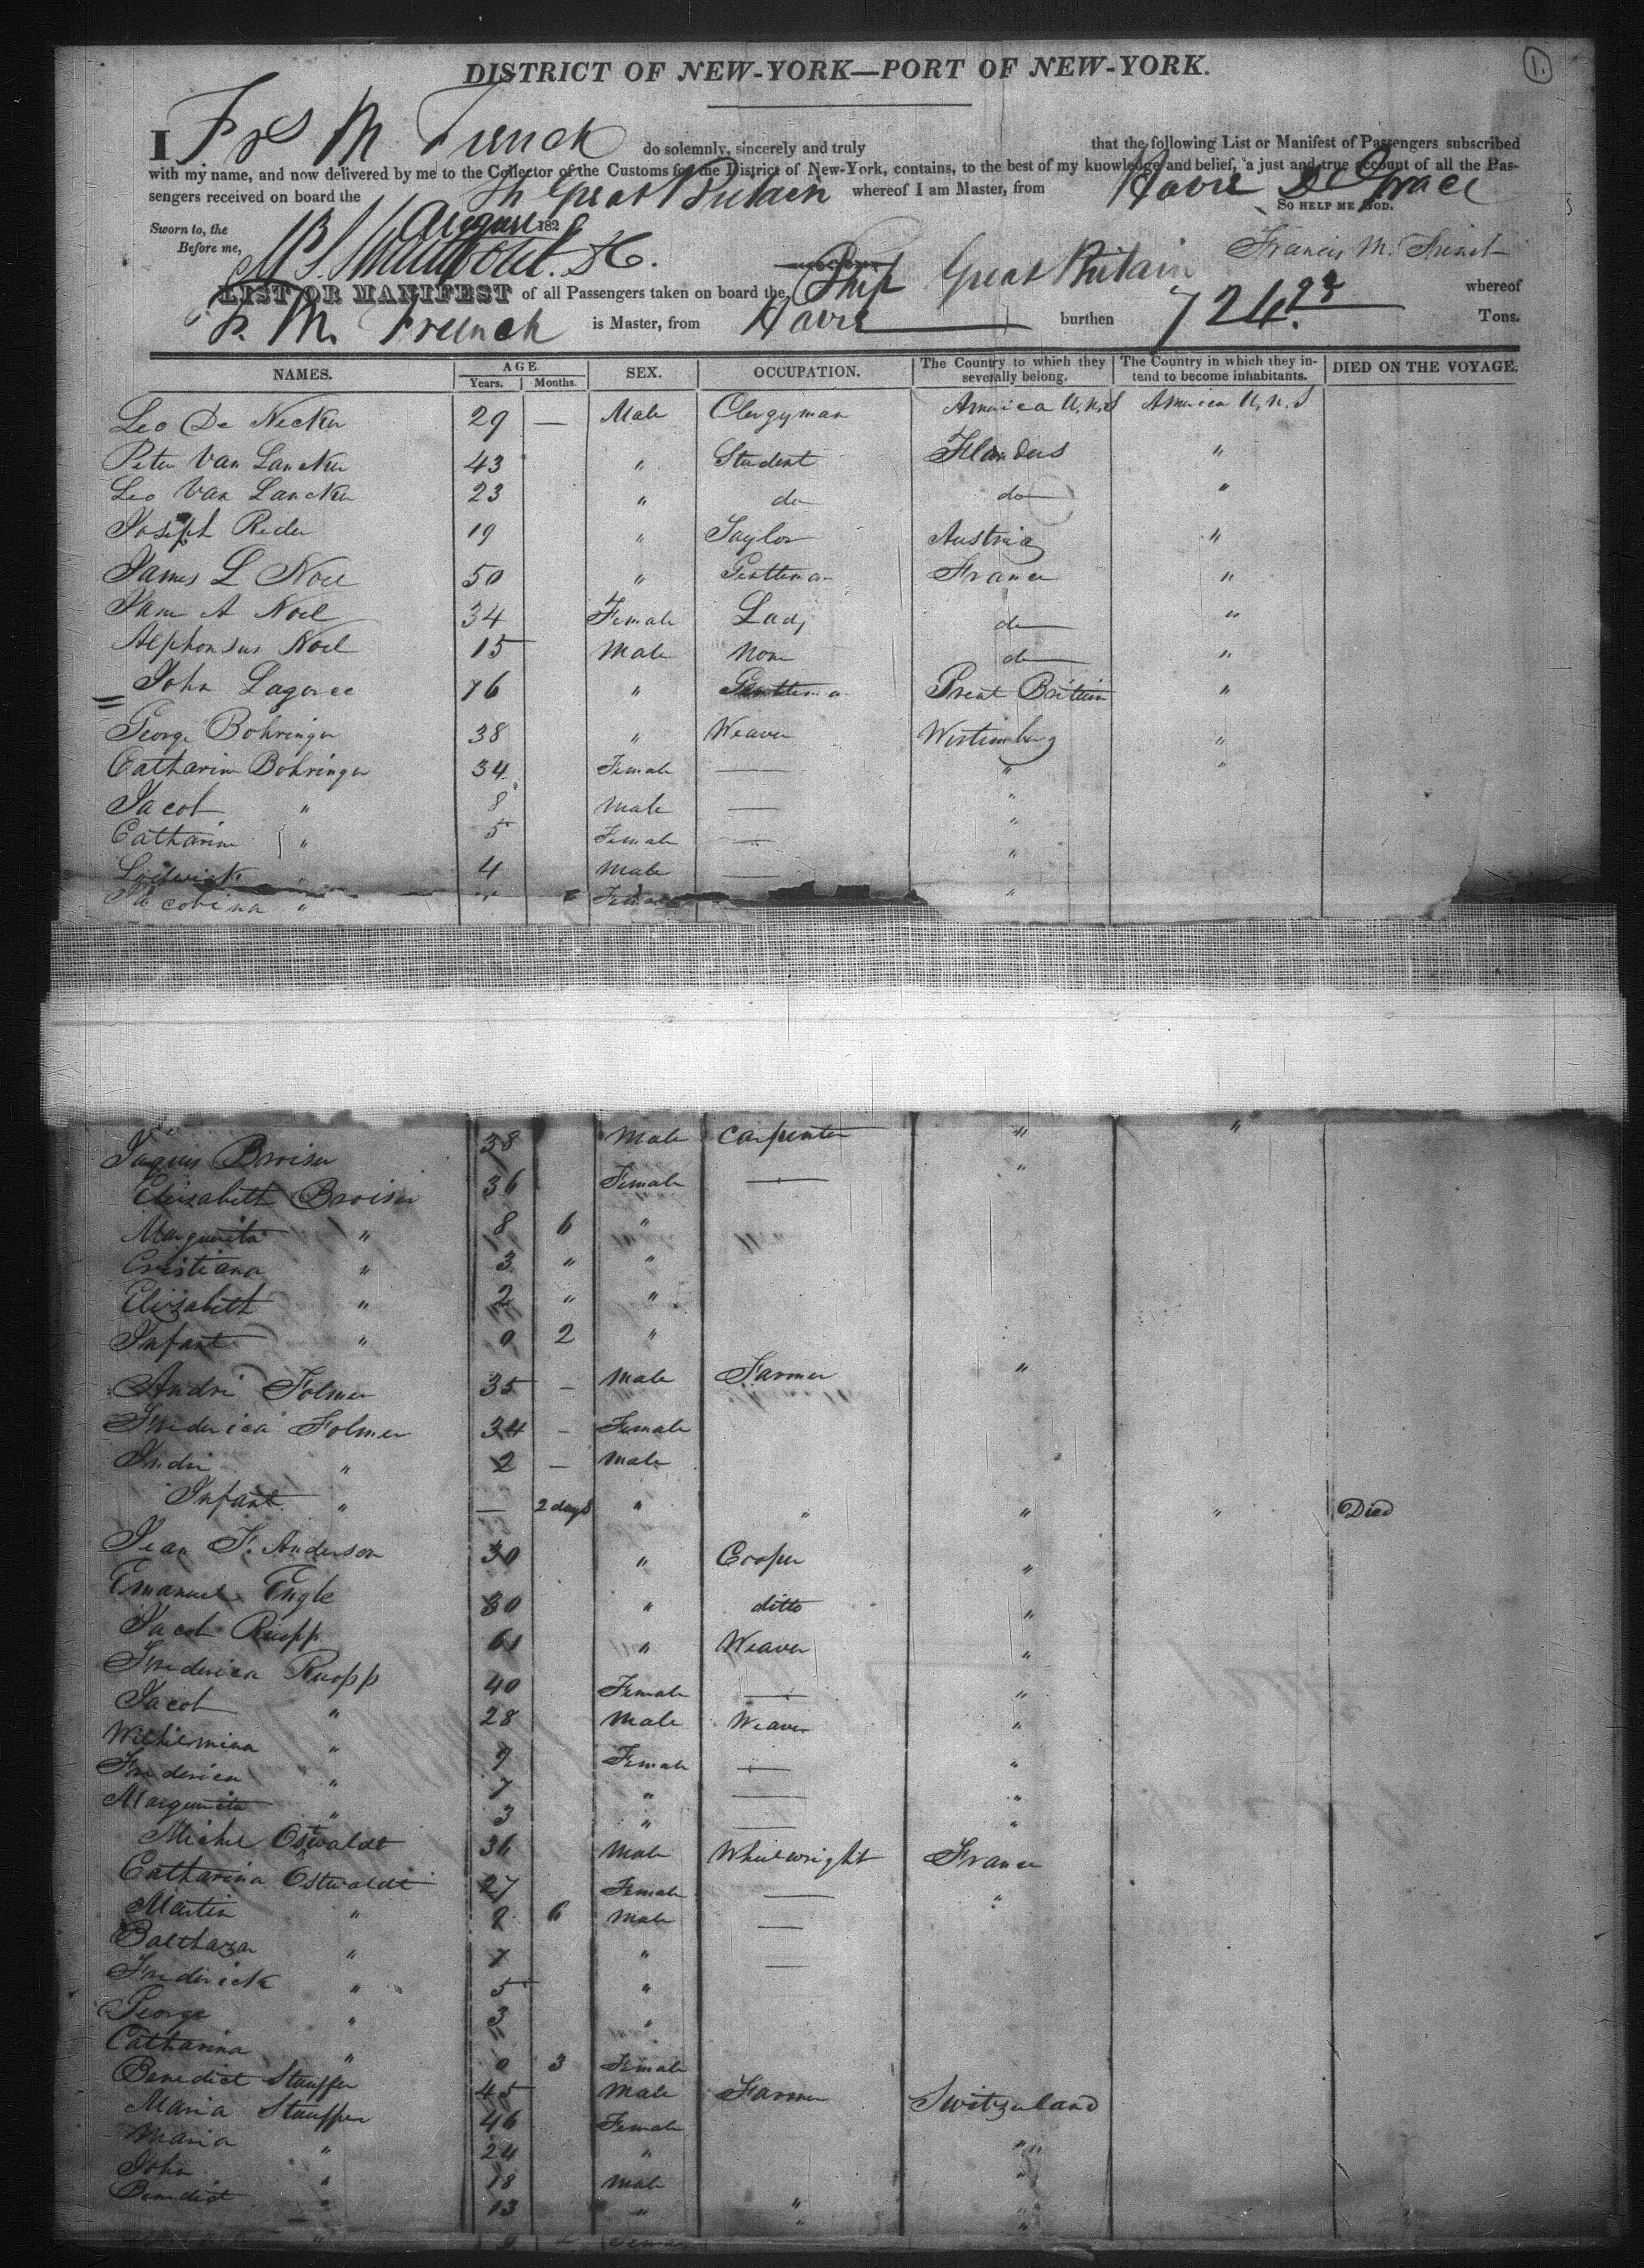 1.
DISTRICT OF NEW-YORK—PORT OF NEW-YORK.
I Frs M French do solemnly, sincerely and truly that the following List or Manifest of Passengers subscribed
with my name, and now delivered by me to the Collector of the Customs for the District of New-York, contains, to the best of my knowledge and belief, a just and true account of all the Pas-
sengers received on board the Sh Great Britain whereof I am Master, from Havre De Grace
SO HELP ME GOD.
Sworn to, the August 182
Before me, Francis M. French
LIST OR MANIFEST of all Passengers taken on board the Ship Great Britain whereof
F. M. French is Master, from Havre burthen 724.93 Tons.
NAMES. AGE. SEX. OCCUPATION. The Country to which they severally belong. The Country in which they intend to become inhabitants. DIED ON THE VOYAGE.
Years. Months.
Leo De Necker 29 — Male Clergyman America U,N,S America U,N,S
Peter Van Lancker 43 " Student Flanders "
Leo Van Lancker 23 " do do "
Joseph Reder 19 " Taylor Austria "
James L Noel 50 " Gentleman France "
Jane A Noel 34 Female Lady do "
Alphonsus Noel 15 Male None do "
John Lagorce 76 " Gentleman Great Britain "
George Bohringer 38 " Weaver Wirtemberg "
Catharine Bohringer 34 Female — " "
Jacob " 8 Male — "
Catharine " 5 Female — "
Lodwick " 4 Male — "
Jacobina " " 6 Female "
Jaques Broiser 38 Male Carpenter " "
Elizabeth Broiser 36 Female — "
Marguerita " 8 6 "
Cristiana " 3 " "
Elizabeth " 2 " "
Infant " 0 2 "
Andre Folmer 35 — Male Farmer "
Frederica Folmer 34 — Female
Andre " 2 — Male
Infant " — 2 days " " " " Died
Jean F. Anderson 30 " Cooper "
Emanuel Engle 30 " ditto "
Jacob Ruopp 61 " Weaver "
Frederica Ruopp 40 Female — "
Jacob " 28 Male Weaver "
Wilhelmina " 9 Female — "
Frederica " 7 " — "
Marguerita " 3 " — "
Michel Ostwaldt 36 Male Wheelwright France
Catharina Ostwaldt 27 Female — "
Martin " 9 6 Male —
Balthazar " 7 " —
Frederick " 5 "
George " 3 "
Catharina " 0 3 Female
Benedict Stauffer 45 Male Farmer Switzerland
Maria Stauffer 46 Female
Maria " 24 " "
John " 18 Male "
Benedict " 13 " " "